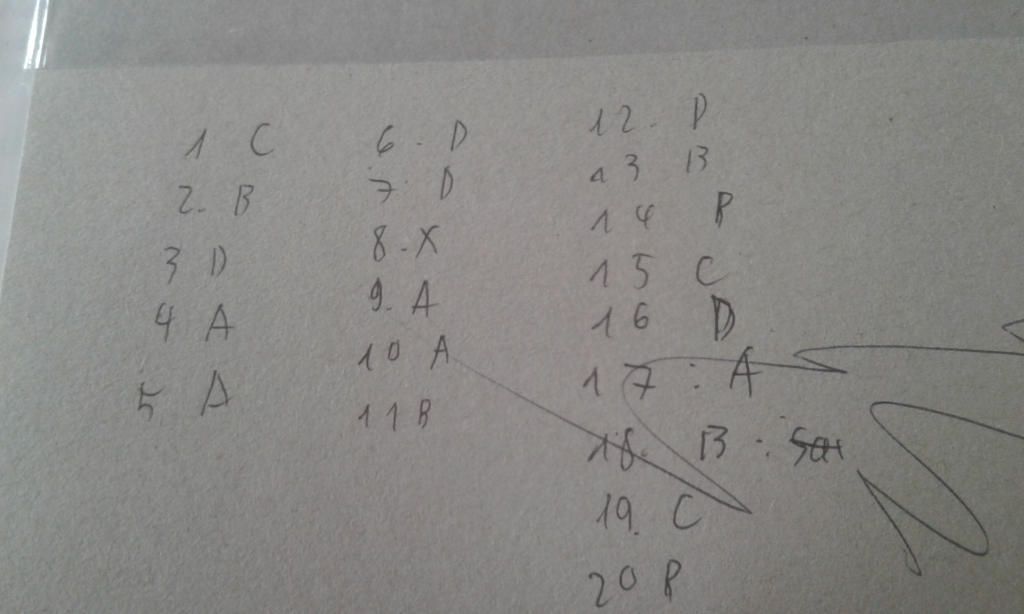 1 C
2. B
3 D
4 A
5 A
6. D
7. D
8. X
9. A
10 A
11 B
12. D
13 B
14 B
15 C
16 D
17 : A
18. B : Sai
19. C
20 B